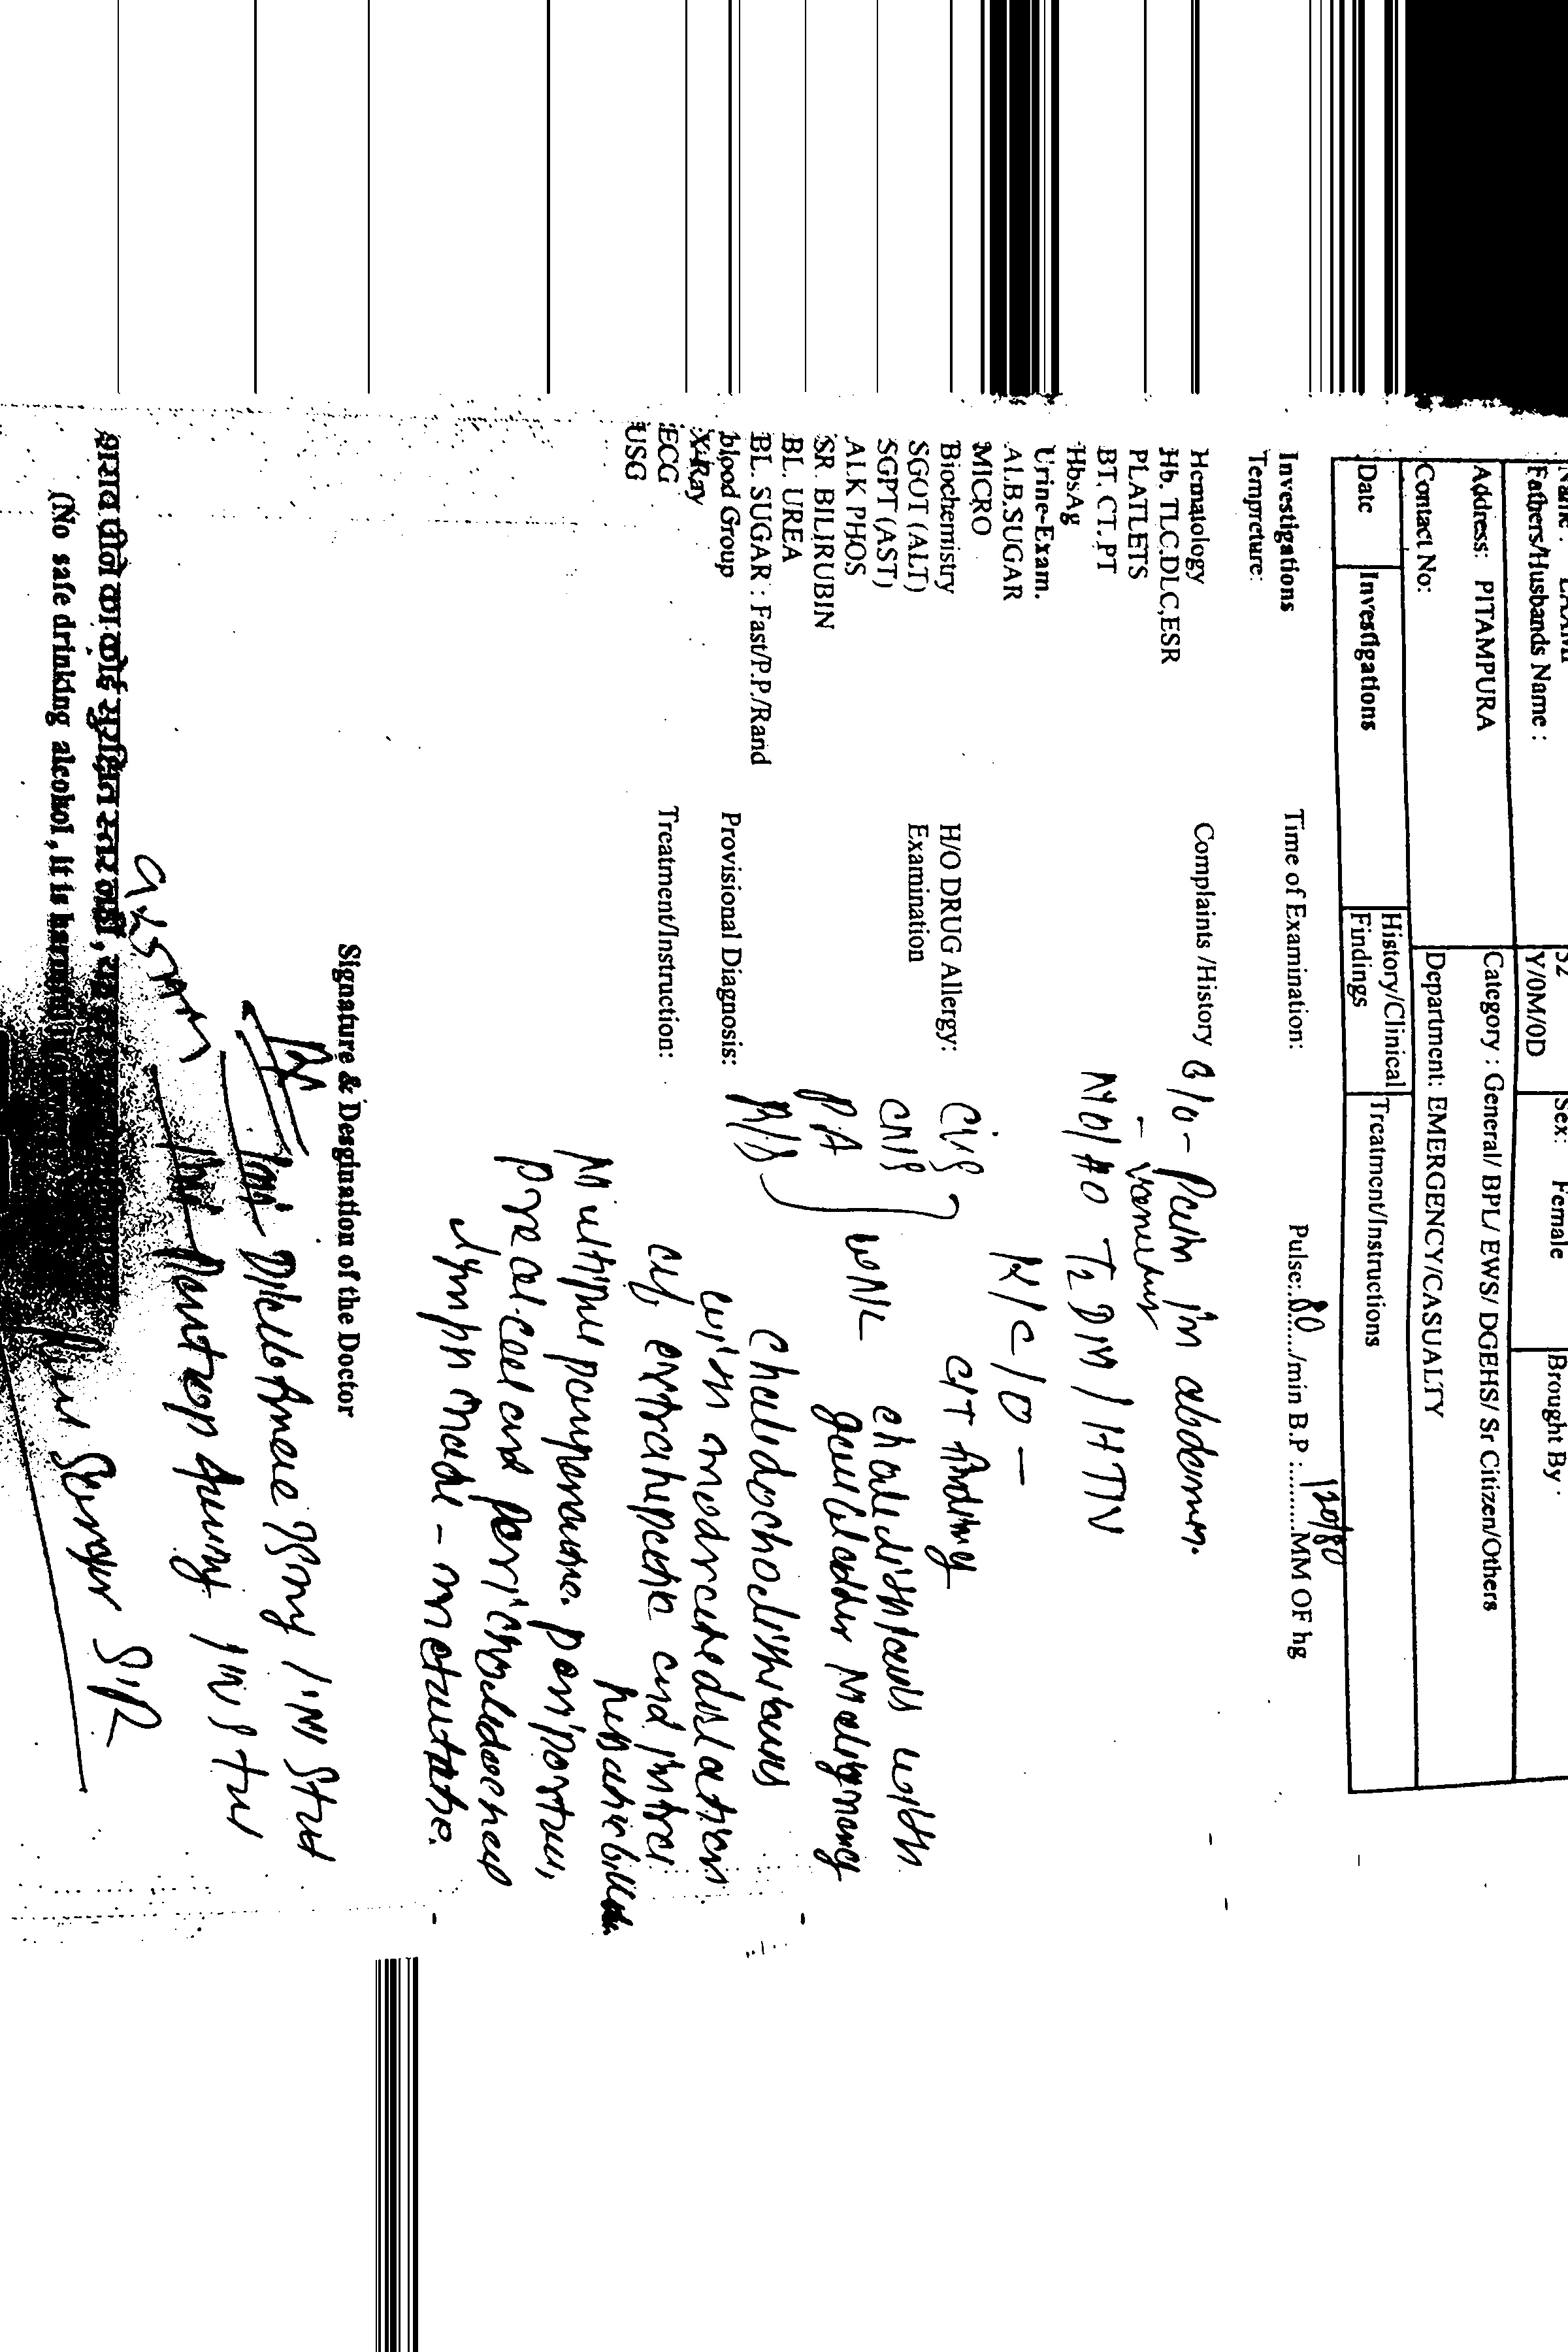 Name : LAXMI
52 Y/0M/0D
Sex: Female
Brought By :
Fathers/Husbands Name :
Address: PITAMPURA
Category : General/ BPL/ EWS/ DGEHS/ Sr Citizen/Others
Contact No:
Department: EMERGENCY/CASUALTY
Date
Investigations
History/Clinical Findings
Treatment/Instructions
Investigations
Time of Examination:
Pulse:.80....../min B.P :.........MM OF hg
120/80
Tempreture:
Hematology
Hb. TLC.DLC,ESR
PLATLETS
BT. CT. PT
HbsAg
Urine-Exam.
ALB.SUGAR
MICRO
Biochemistry
SGOT (ALT)
SGPT (AST)
ALK PHOS
SR. BILIRUBIN
BL. UREA
BL. SUGAR : Fast/P.P./Rand
blood Group
X-Ray
ECG
USG
Complaints /History C/o - Pain in abdomen.
- vomiting
No/HO T2 DM / HTN
K/C/O -
H/O DRUG Allergy:
Examination
CVS
CNS
PA
R/S
WNL
CT finding
cholelithiasis with
gallbladder Malignancy
Choledocholithiasis
with moderate dilation
of extrahepatic and intra
hepatic
Multiple peripancreatic. periportal,
precaval and pericholedochal
lymph node - metastatic.
Provisional Diagnosis:
Treatment/Instruction:
Signature & Desgination of the Doctor
Inj. 75mg / IM Stat
Inj. Pantrop 40mg IV Stat
9:25 AM
Sir
शराब पीने का कोई सुरक्षित स्तर नहीं, यह
(No safe drinking alcohol, it is